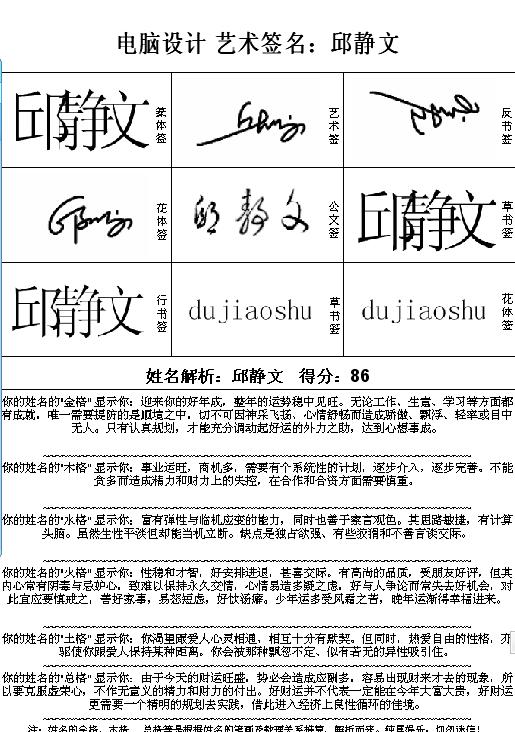 电脑设计 艺术签名：邱静文
邱静文
篆体签
艺术签
反书签
花体签
邱静文
公文签
邱静文
草书签
邱静文
行书签
dujiaoshu
草书签
dujiaoshu
花体签
姓名解析：邱静文 得分：86
你的姓名的"金格"显示你：迎来你的好年成，整年的运势稳中见旺。无论工作、生意、学习等方面都
有成就，唯一需要提防的是顺境之中，切不可因神采飞扬、心情舒畅而造成骄傲、飘浮、轻率或目中
无人。只有认真规划，才能充分调动起好运的外力之助，达到心想事成。
你的姓名的"木格"显示你：事业运旺，商机多，需要有个系统性的计划，逐步介入，逐步完善。不能
贪多而造成精力和财力上的失控，在合作和合资方面需要慎重。
你的姓名的"水格"显示你：富有弹性与临机应变的能力，同时也善于察言观色。其思路敏捷，有计算
头脑。虽然生性平淡但却能当机立断。缺点是独占欲强、有些狡猾和不善言谈交际。
你的姓名的"火格"显示你：性稳和才智，好安排进退，甚喜交际。有高尚的品质，受朋友好评，但其
内心常有阴毒与忌妒心，致难以保持永久交情，心情易造多疑之虑，好与人争论而常失去好机会，对
此宜应要慎戒之，善好家事，易怒短虑，好饮游癖。少年运多受风霜之苦，晚年运渐得幸福进来。
你的姓名的"土格"显示你：你渴望跟爱人心灵相通，相互十分有默契。但同时，热爱自由的性格，亦
驱使你跟爱人保持某种距离。你会被那种飘忽不定、似有若无的异性吸引住。
你的姓名的"总格"显示你：由于今天的财运旺盛，势必会造成应酬多，容易出现财来才去的现象，所
以要克服虚荣心，不作无意义的精力和财力的付出。好财运并不代表一定能在今年大富大贵，好财运
更需要一个精明的规划去实践，借此进入经济上良性循环的佳境。